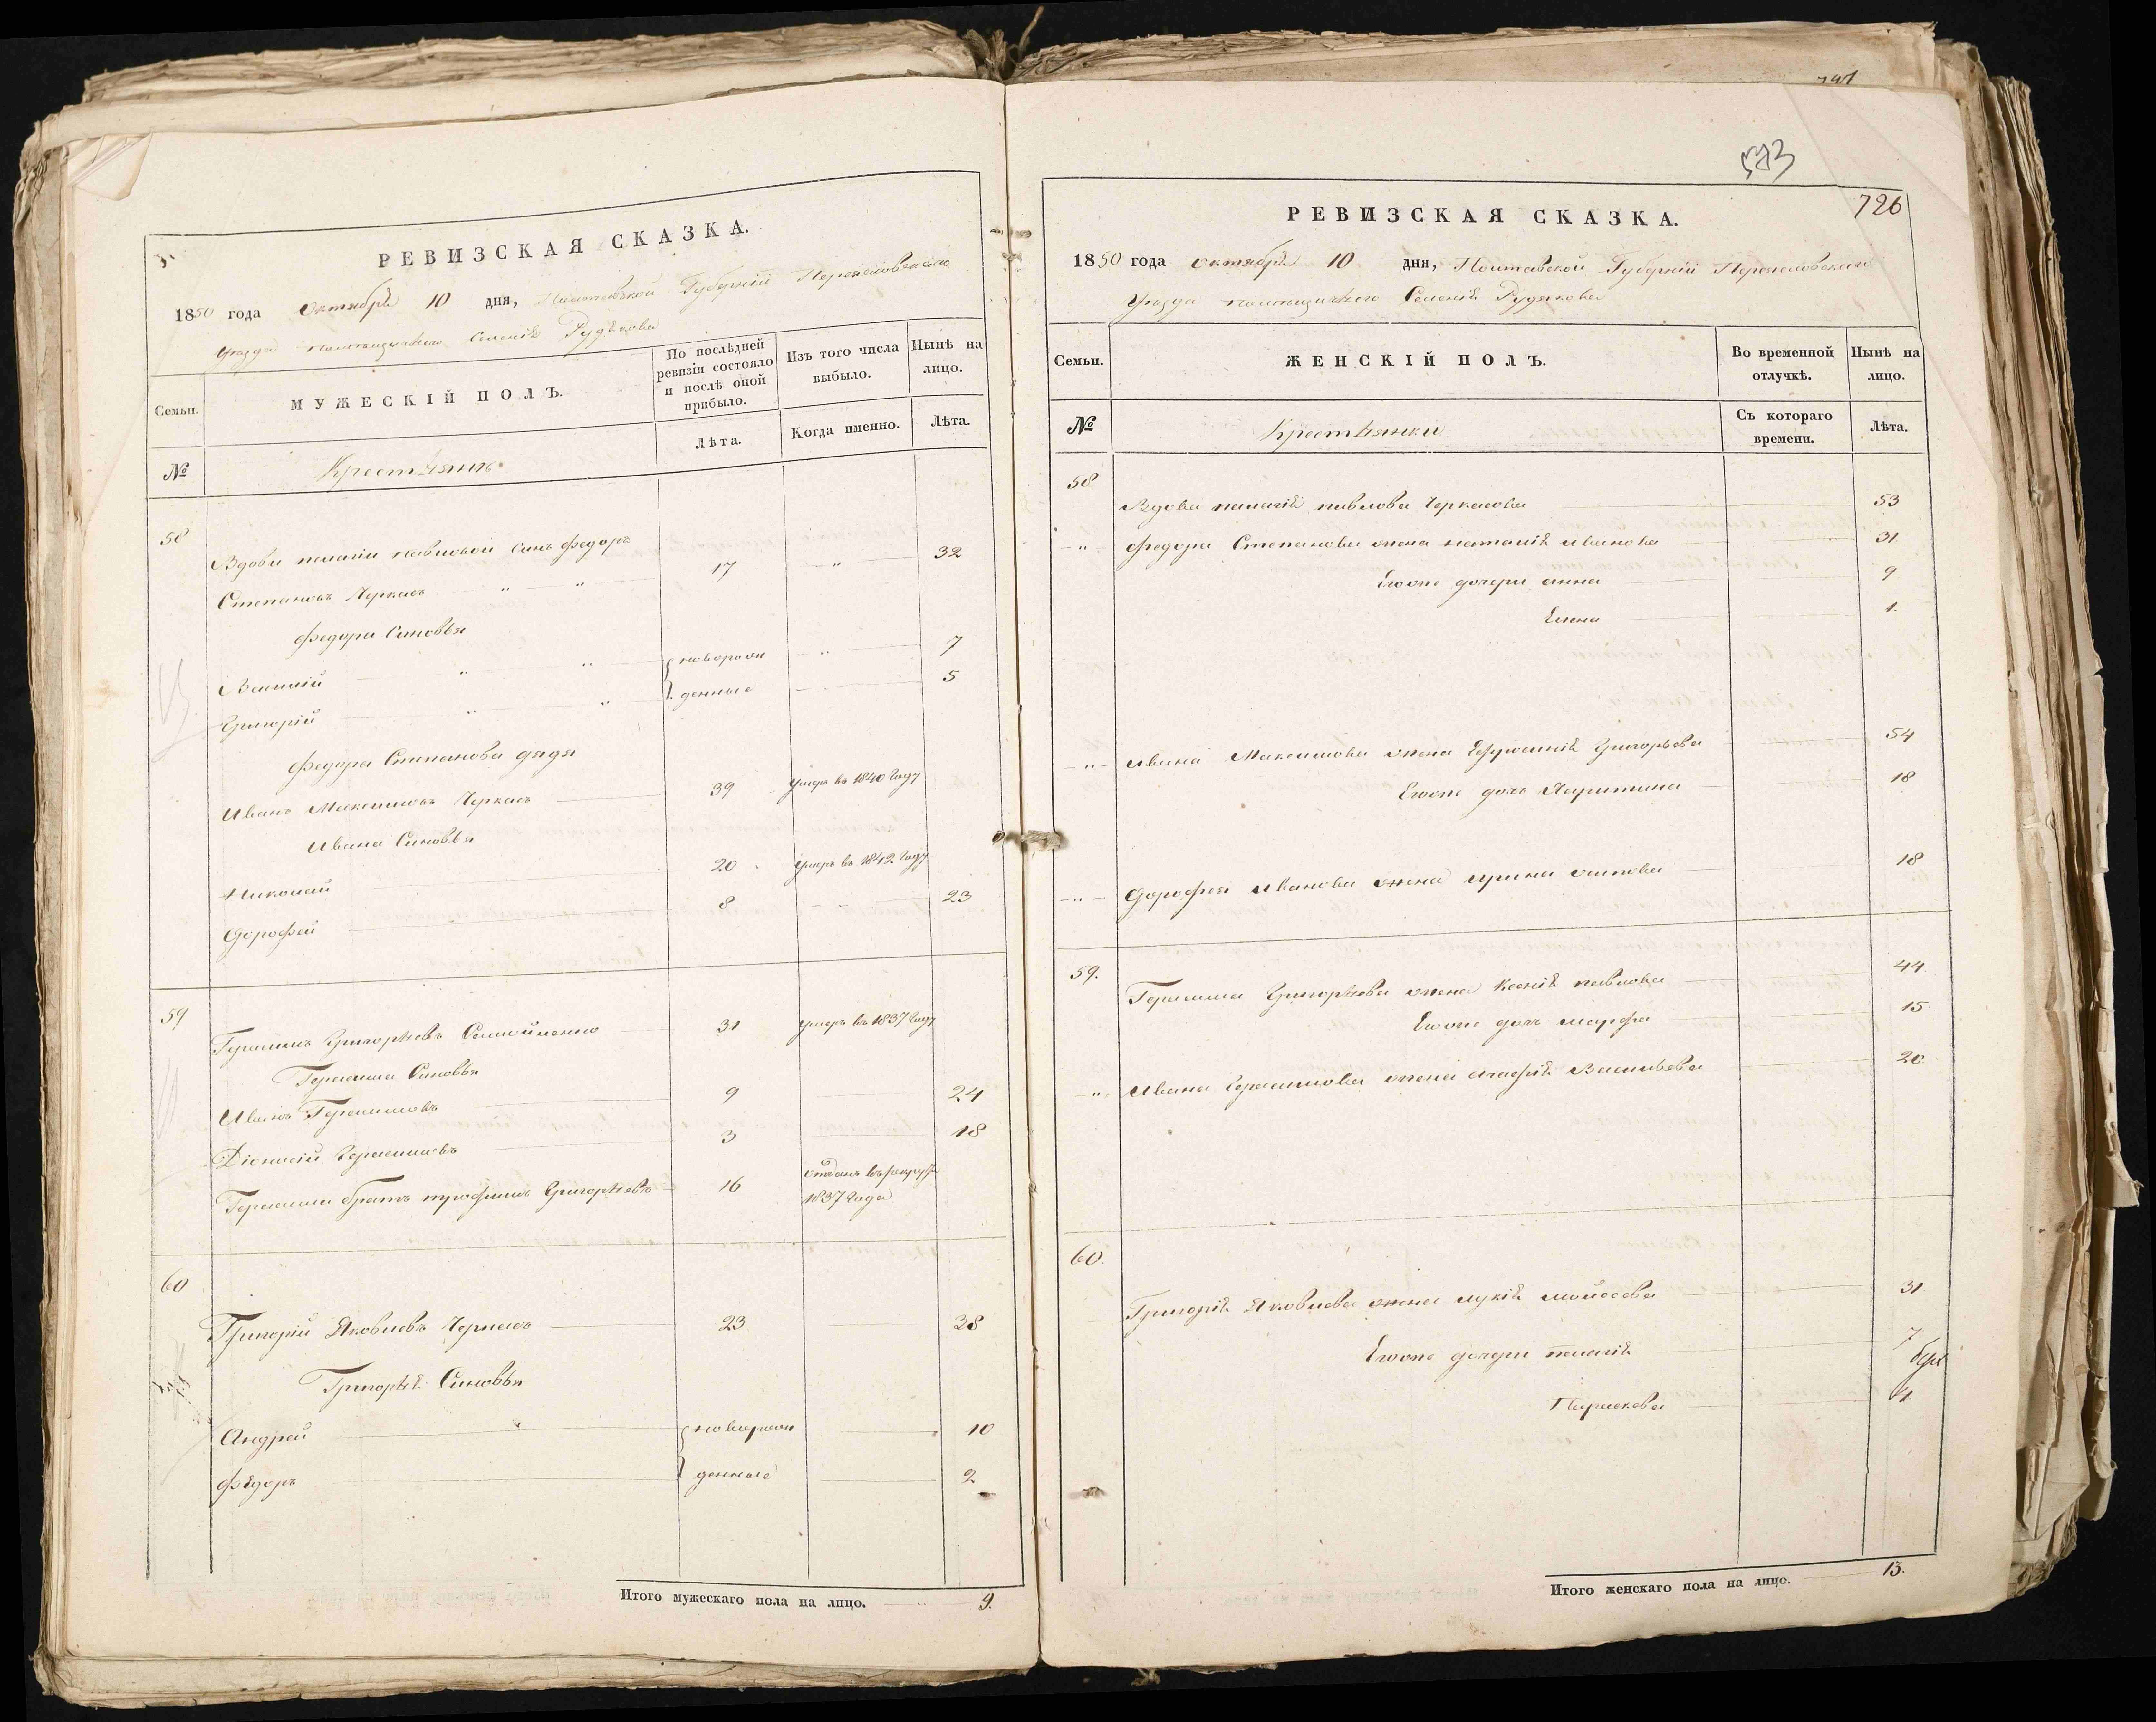 РЕВИЗСКАЯ СКАЗКА.
1850 года Октября 10 дня, Полтавской Губерніи Переясловскаго
Уезда помещичьего Селенія Рудякова
Семьи. МУЖЕСКІЙ ПОЛЪ. По послѣдней ревизіи состояло и послѣ оной прибыло. Изъ того числа выбыло. Нынѣ на лицо.
№ Крестьяне Лѣта. Когда именно. Лѣта.
58
Вдовы пелагіи павловой Синъ федоръ
Степановъ Черкасъ " " 17 " 32
федора Синовья
Василій " " новорож 7
Григорій " " денные 5
федора Степанова дядя
Иванъ Максимовъ Черкасъ 39 Умеръ въ 1840 Году
Ивана Синовья
Николай 20 Умеръ въ 1842 Году
Дорофей 8 23
59
Герасимъ Григорьевъ Самойленко 31 Умеръ въ 1837 Году
Герасима Синовья
Иванъ Герасимовъ 9 24
Діонисій Герасимовъ 3 18
Герасима братъ трофимъ Григорьевъ 16 отданъ въ рекруты
1837 Года
60
Григорій Яковлевъ Черкасъ 23 38
Григорія Синовья
Андрей новорож 10
Федоръ денные 2
Итого мужескаго пола на лицо. 9.
741
573
726
РЕВИЗСКАЯ СКАЗКА.
1850 года октября 10 дня, Полтавской Губерніи Переясловскаго
Уезда помещичьего Селенія Рудякова
Семьи. ЖЕНСКІЙ ПОЛЪ. Во временной отлучкѣ. Нынѣ на лицо.
№ Крестьянки Съ котораго времени. Лѣта.
58
Вдова пелагія павлова Черкасова 53
" федора Степанова жена наталія иванова 31
Егоже дочери анна 9
Елена 1.
" ивана Максимова жена Ефросинія Григорьева 54
Егоже дочь Харитина 18
" Дорофея иванова жена ирина осипова 18
59. Герасима Григорьева жена Ксенія павлова 44
Егоже дочь марфа 15
" ивана Герасимова жена агафія Васильева 20
60.
Григорія Яковлева жена лукія мойсеева 31
Егоже дочери пелагія 7
Параскева 4
Итого женскаго пола на лицо. 13.